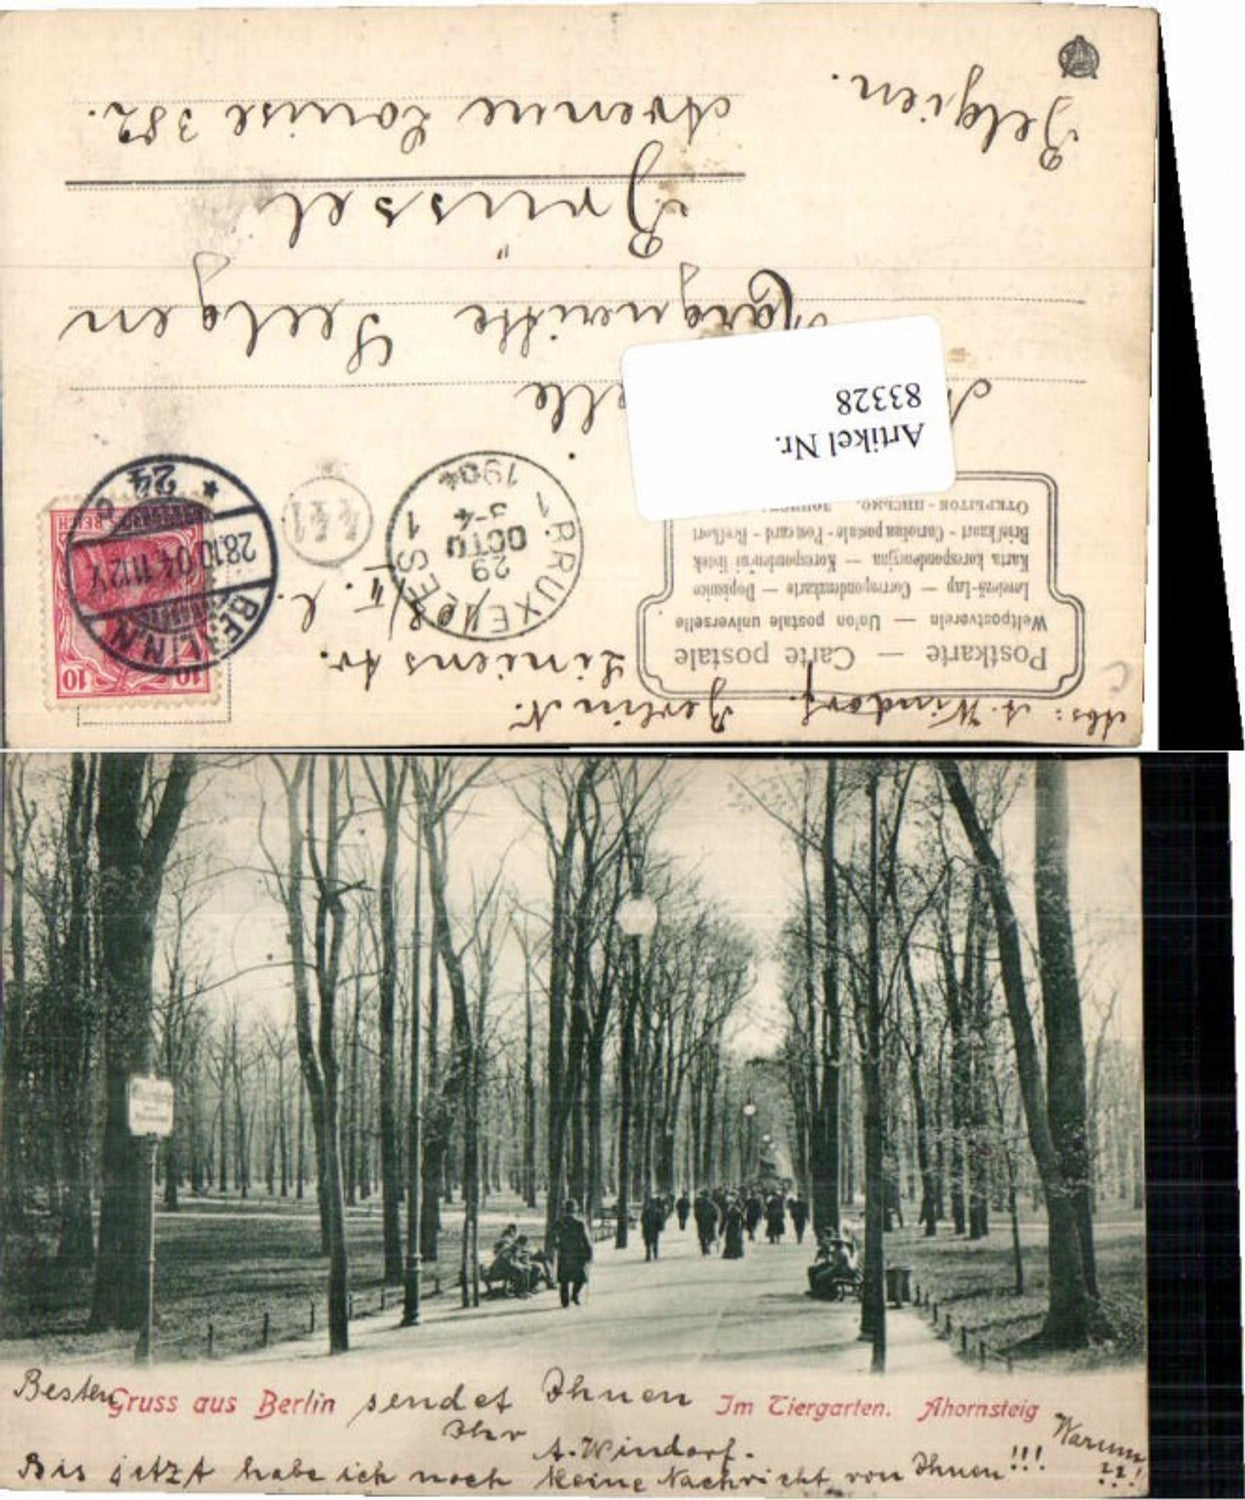 Abs: A. Windorf. Berlin N. Linienstr.
Postkarte — Carte postale
Weltpostverein — Union postale universelle
Levelező-Lap — Correspondenzkarte — Dopisnice
Karta korespondencyjna — Korespondenční lístek
Brefkort - Cartolina postale - Post card - Brefkort
10 10
REICH
BERLIN N
28.10.04. 11-12 V.
* 24
BRUXELLES 1
29 OCTO
3-4
1904
441
Artikel Nr.
83328
elle
Marguerite Seelgen
Brüssel
Avenue Louise 382.
Belgien.
Besten Gruss aus Berlin sendet Ihnen
Im Tiergarten. Ahornsteig
Ihr
A. Windorf.
Bis jetzt habe ich noch keine Nachricht von Ihnen!!!
Warum
??!